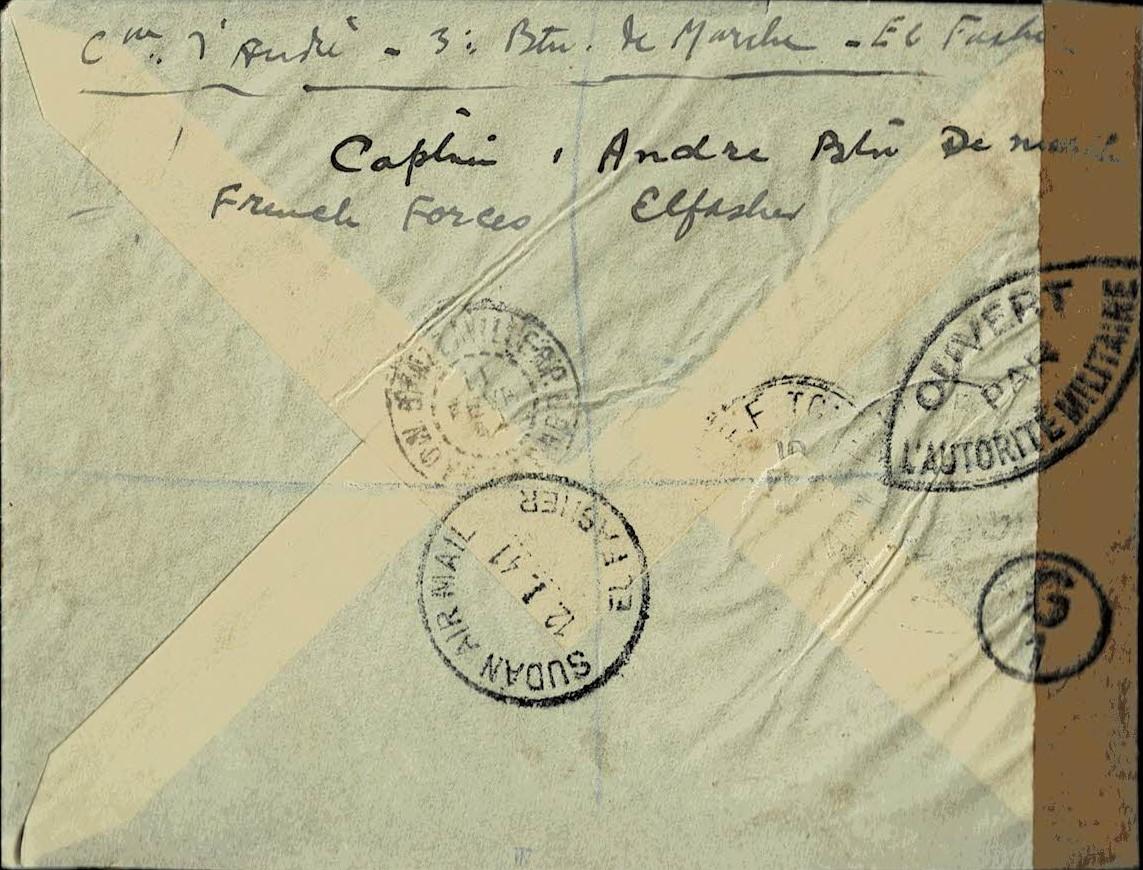 Cne. d'André - 3e. Btn. de Marche - El Fasher
Captain, Andre Btn De
French Forces Elfasher
BRAZZAVILLE R.P.
OUVERT
PAR
L'AUTORITÉ MILITAIRE
SUDAN AIR MAIL
EL FASHER
12.1.41
G
1